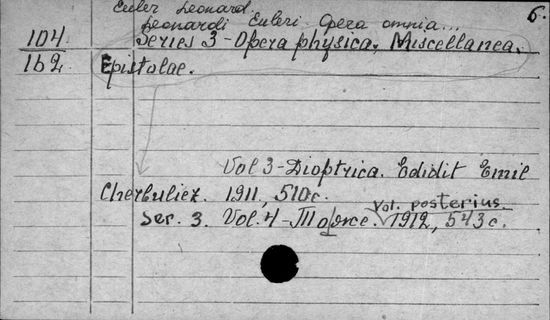 Euler Leonard
6.
Leonardi Euleri Opera omnia...
104 Series 3 - Opera physica. Miscellanea.
162 Epistolae.
Vol 3 - Dioptrica. Edidit Emil
Cherbuliez. 1911, 510c.
Vol. posterius.
Ser. 3. Vol. 4 - То же. 1912, 543 c.